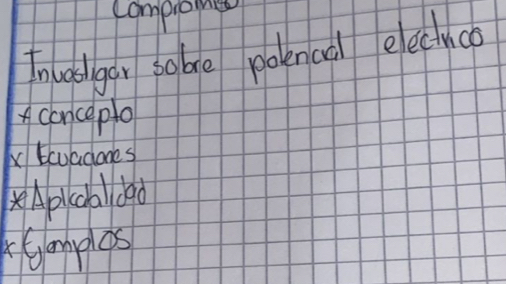 Compromiso
Investigar sobre potencial electrico
* concepto
x Ecuaciones
* Aplicabilidad
x Ejemplos